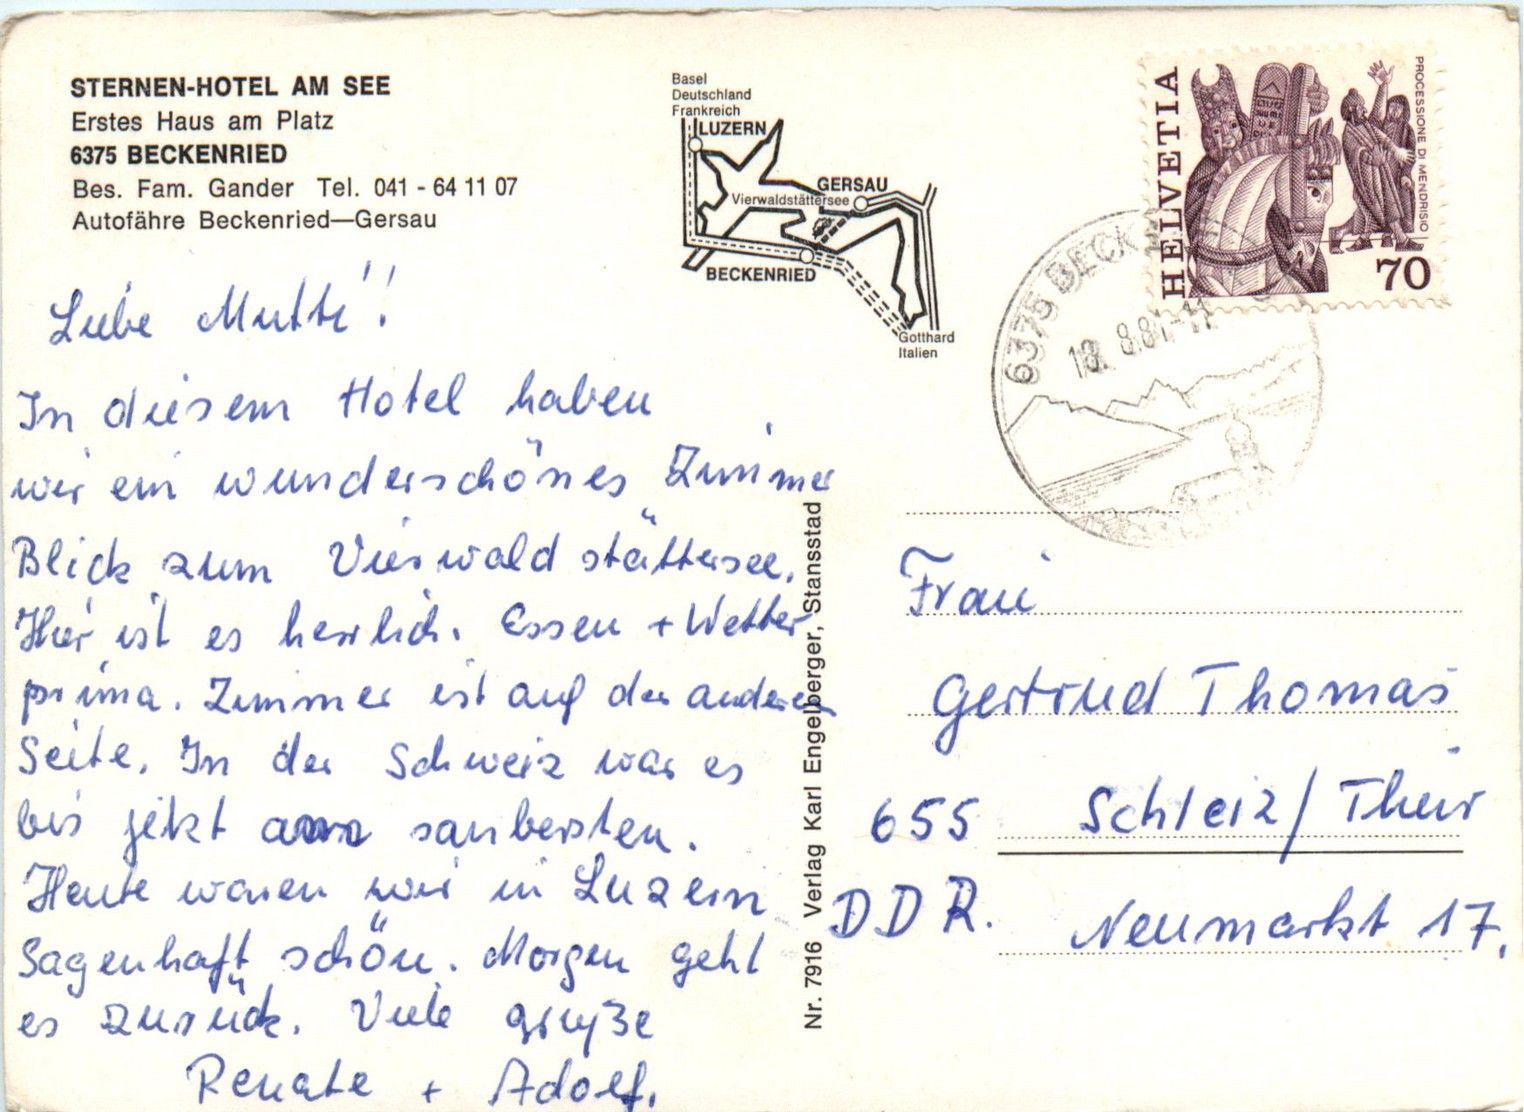 STERNEN-HOTEL AM SEE
Erstes Haus am Platz
6375 BECKENRIED
Bes. Fam. Gander Tel. 041 - 64 11 07
Autofähre Beckenried—Gersau
Basel
Deutschland
Frankreich
LUZERN
GERSAU
Vierwaldstättersee
BECKENRIED
Gotthard
Italien
HELVETIA
PROCESSIONE DI MENDRISIO
70
6375 BECK
18. 8.81-11
Liebe Mutti!!
In diesem Hotel haben
wir ein wunderschönes Zimmer
Blick zum Vierwaldstättersee.
Hier ist es herrlich. Essen + Wetter
prima. Zimmer ist auf der anderen
Seite. In der Schweiz war es
bis jetzt am saubersten.
Heute waren wir in Luzern
Sagenhaft schön. Morgen geht
es zurück. Viele Grüße
Renate + Adolf.
Nr. 7916 Verlag Karl Engelberger, Stansstad
Frau
Gertrud Thomas
655 Schleiz/Thür
DDR. Neumarkt 17.